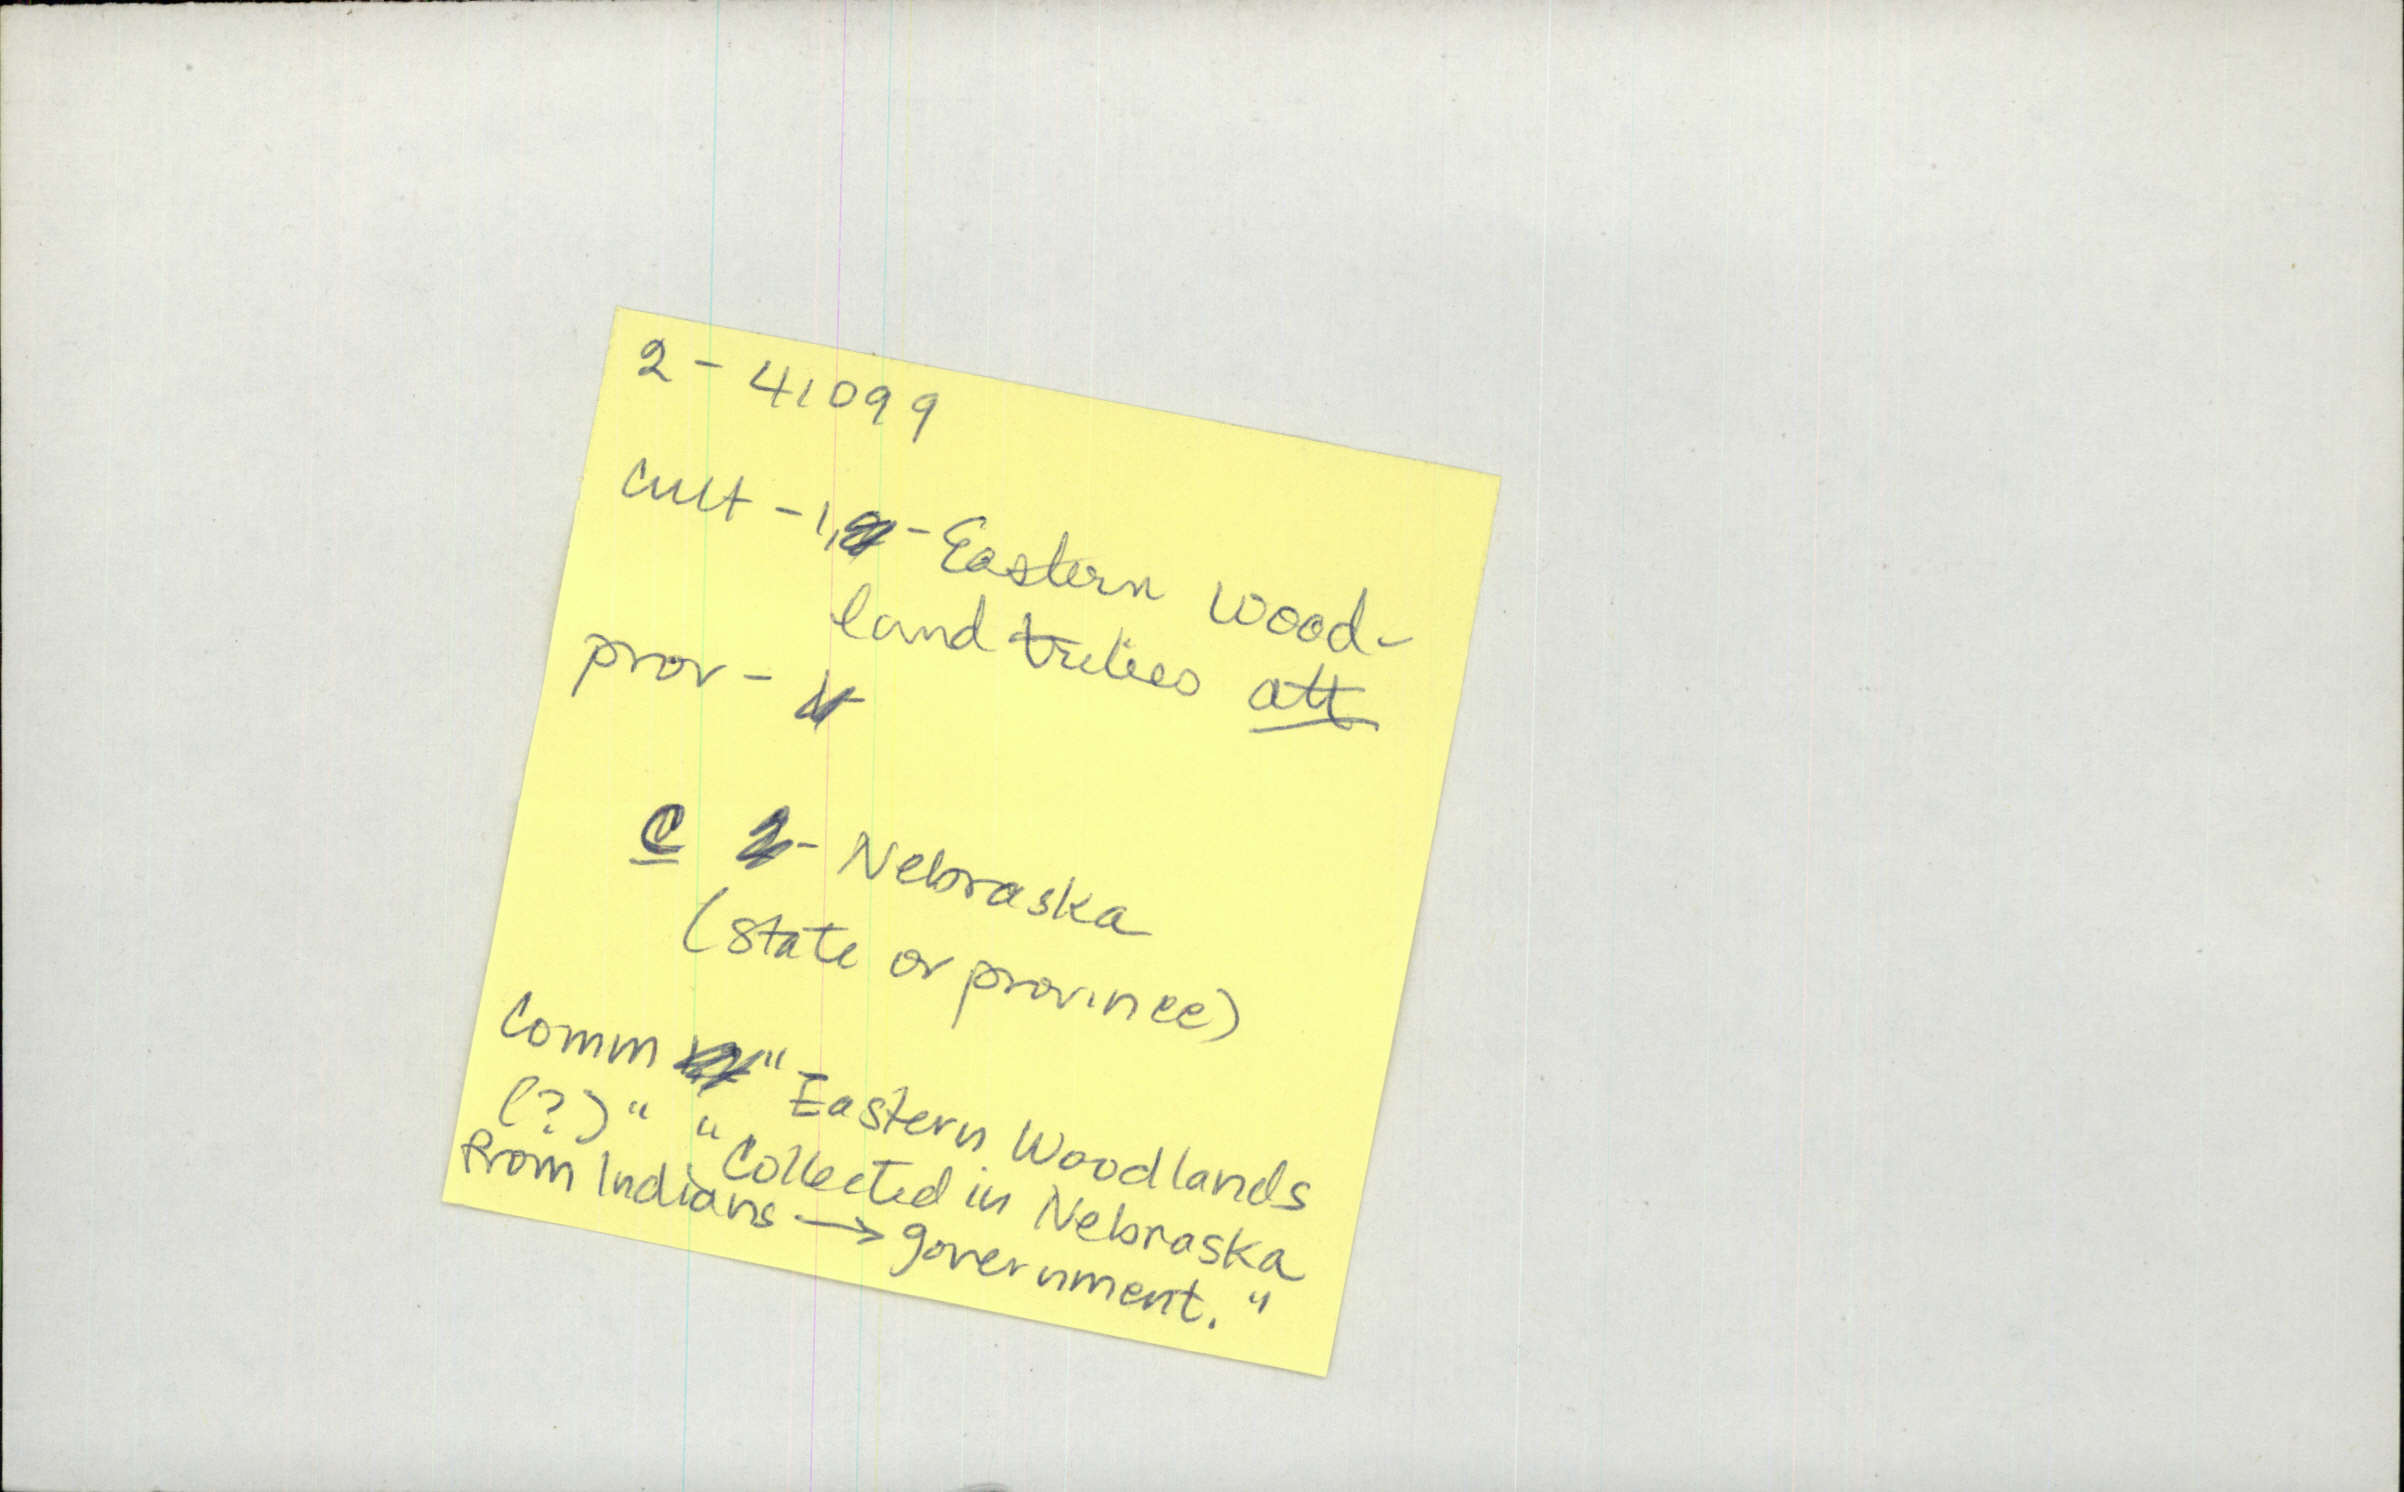 2 - 41099
cult - 1, - Eastern wood-
land tribes att
prov -
C - Nebraska
(state or province)
Comm "Eastern Woodlands
(?)" "Collected in Nebraska
From Indians → government."